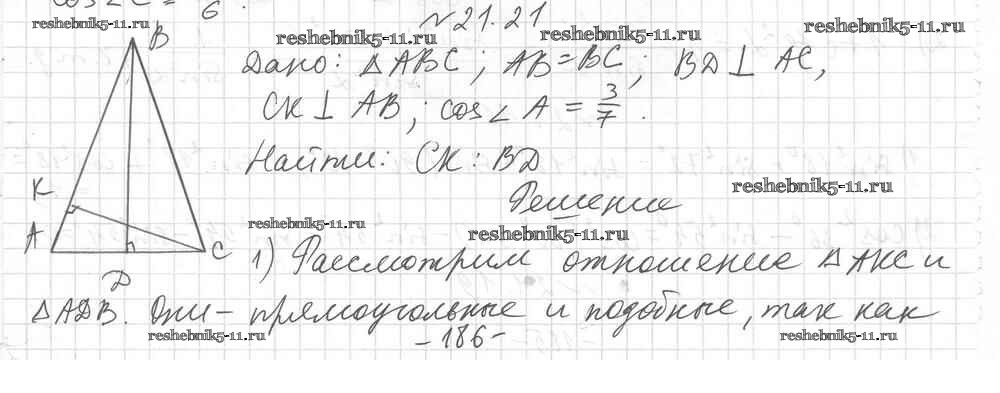 cos∠C = 6.
reshebnik5-11.ru
№ 21.21
reshebnik5-11.ru
reshebnik5-11.ru
B
Дано: △ABC; AB=BC; BD⊥AC,
CK⊥AB; cos∠A = 3/7.
Найти: CK:BD
K
reshebnik5-11.ru
Решение
A
reshebnik5-11.ru
reshebnik5-11.ru
C
1) Рассмотрим отношение △AKC и
D
△ADB. Они - прямоугольные и подобные, так как
reshebnik5-11.ru
-186-
reshebnik5-11.ru